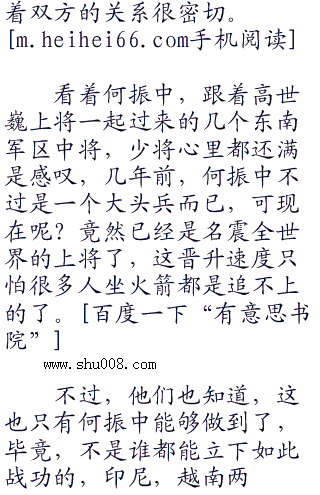 着双方的关系很密切。
[m.heihei66.com手机阅读]
看着何振中，跟着高世
巍上将一起过来的几个东南
军区中将，少将心里都还满
是感叹，几年前，何振中不
过是一个大头兵而已，可现
在呢？竟然已经是名震全世
界的上将了，这晋升速度只
怕很多人坐火箭都是追不上
的了。[百度一下“有意思书
院”]
www.shu008.com
不过，他们也知道，这
也只有何振中能够做到了，
毕竟，不是谁都能立下如此
战功的，印尼，越南两